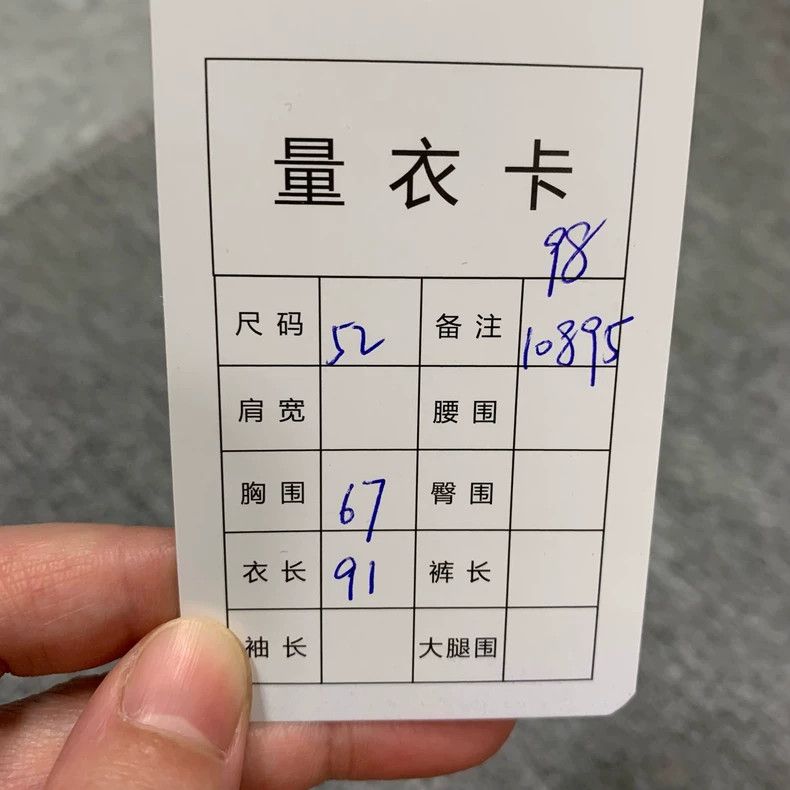 量衣卡
98
尺码 52 备注 10895
肩宽 腰围
胸围 67 臀围
衣长 91 裤长
袖长 大腿围